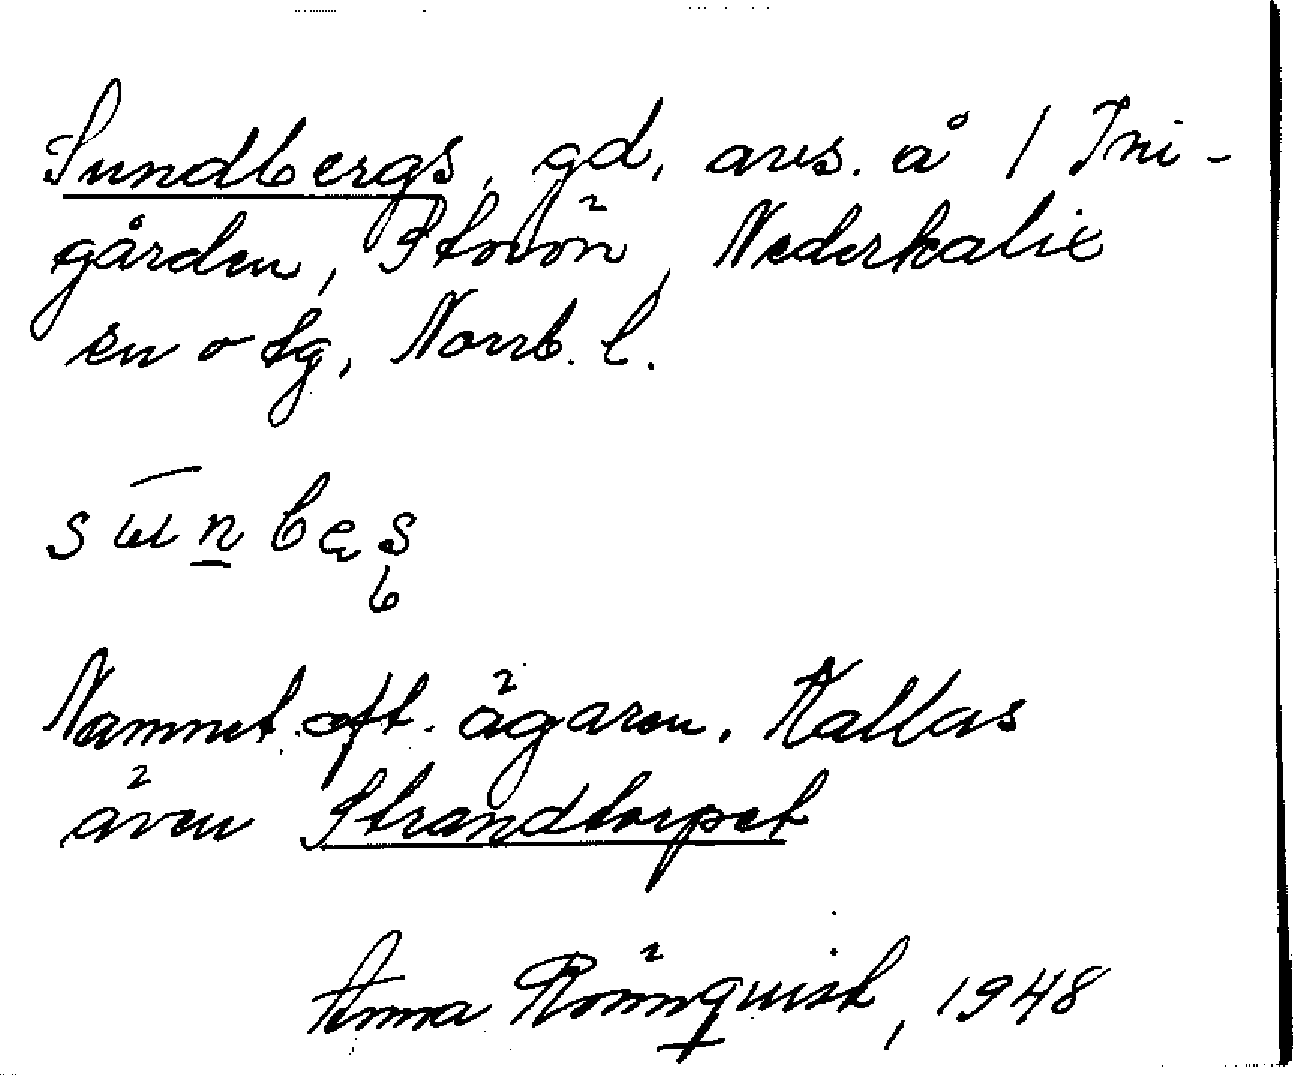 Sundbergs, gd, avs. å 1 Ini-
gården, Storön, Nederkalix
sn o tg, Norrb. l.
Namnet eft. ägaren. Kallas
även Strandtorpet
Anna Rönnquist, 1948